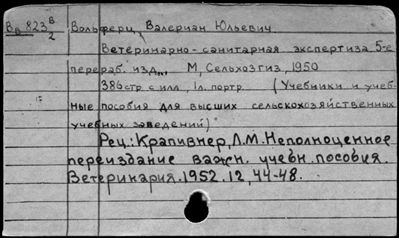 Вв 823 в/2 Вольферц, Валериан Юльевич.
Ветеринарно-санитарная экспертиза. 5-е
перераб. изд., М, Сельхозгиз, 1950
386 стр. с илл., 1 л. портр. (Учебники и учеб-
ные пособия для высших сельскохозяйственных
учебных заведений)
Рец.: Крапивнер, Л.М. Неполноценное
переиздание важн. учебн. пособия.
Ветеринария. 1952. 12, 44-48.